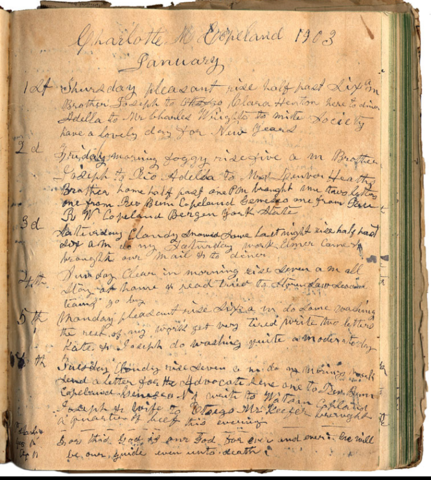 Charlotte M Copeland 1903
January
1st Thursday pleasant rise half past Six a m
Brother Joseph to Clara Heaton here to dine
Adella to Mr Charles Wrights to mite Society
have a lovely day for New Years
2d Friday morning foggy rise five a m Brother
Joseph to Rio Adella to Mr Spencer
Brother home half past one P.M. brought me two letters
one from Rev Benn Copeland Geneseo one from Rev
W Copeland Bergen York State
3d Saturday Cloudy snowed some last night rise half past
Six a m do my Saturday work Elmer came &
brought our mail & to dinner
4th Sunday Clear in morning rise Seven a m all
stay at home & read
5th Monday pleasant rise Six a m do some washing
the rest of my work get very tired write two letters
Kate & Joseph do washing quite a moderate day
6th Tuesday Cloudy rise Seven a m do my morning work
Send a letter for the Advocate here one to Rev Benn
Copeland Geneseo N Y write to William Copeland
Joseph & Wife to Otsego Mr Keefer brought
a quarter of beef this evening
For this God is our God for ever and ever: he will
be our guide even unto death